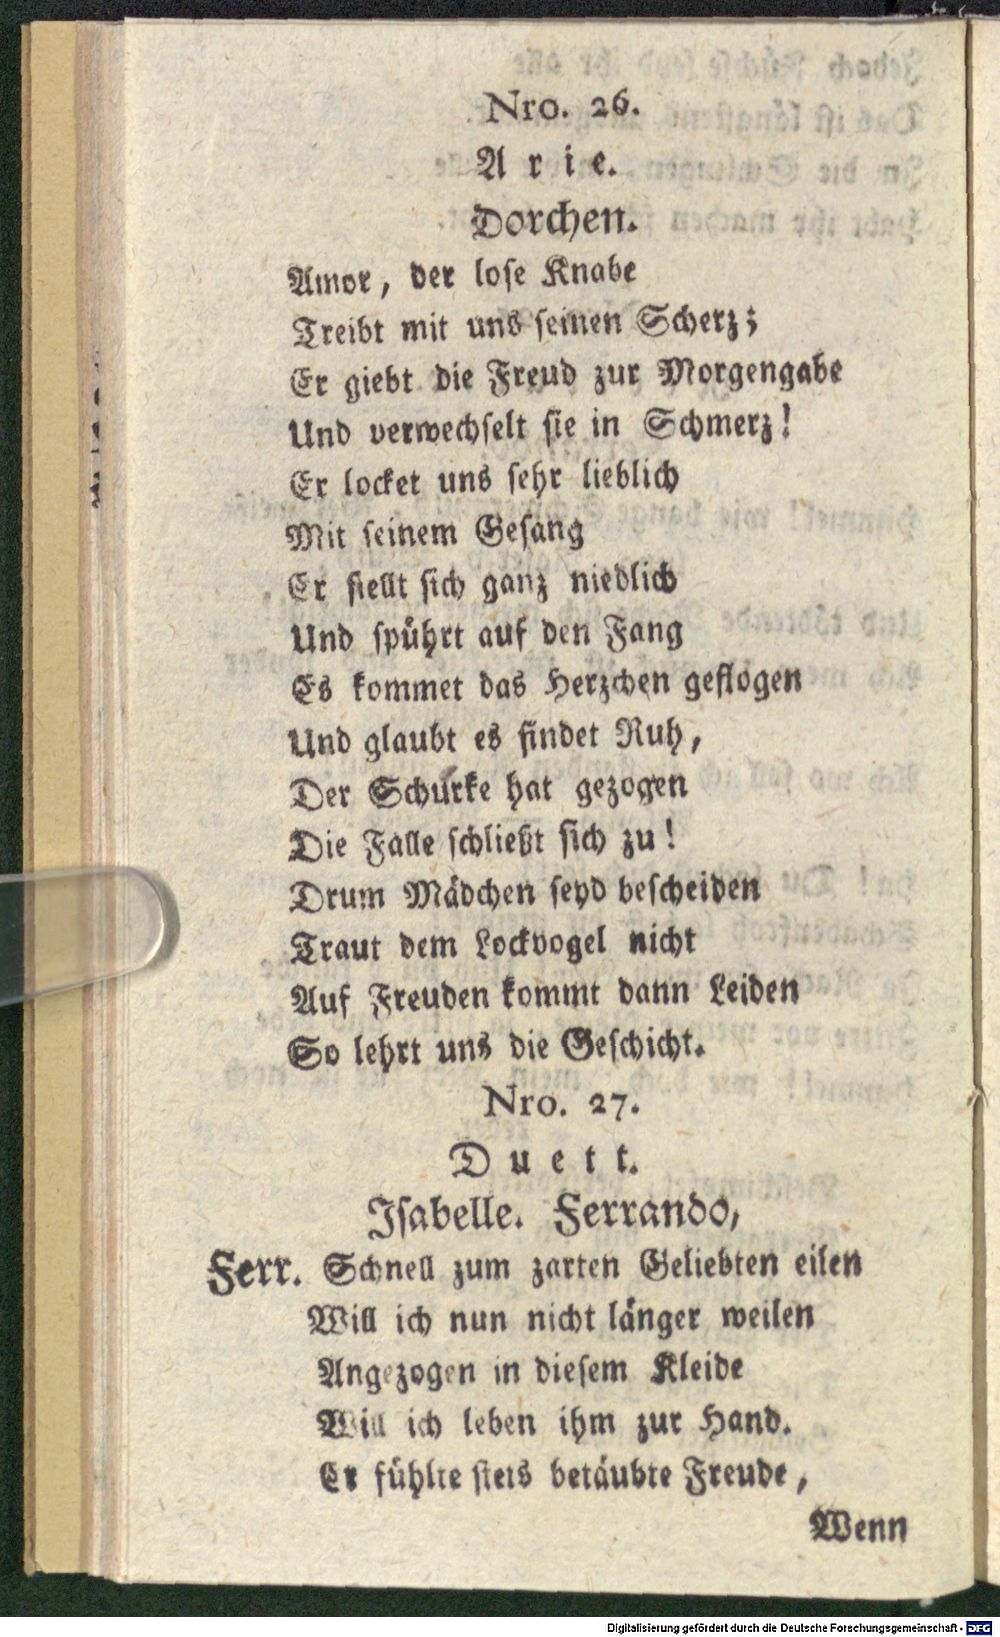 Nro. 26.
Arie.
Dorchen.
Amor, der lose Knabe
Treibt mit uns seinen Scherz;
Er giebt die Freud zur Morgengabe
Und verwechselt sie in Schmerz!
Er locket uns sehr lieblich
Mit seinem Gesang
Er stellt sich ganz niedlich
Und spührt auf den Fang
Es kommet das Herzchen geflogen
Und glaubt es findet Ruh,
Der Schurke hat gezogen
Die Falle schließt sich zu!
Drum Mädchen seyd bescheiden
Traut dem Lockvogel nicht
Auf Freuden kommt dann Leiden
So lehrt uns die Geschicht.
Nro. 27.
Duett.
Isabelle. Ferrando,
Ferr. Schnell zum zarten Geliebten eilen
Will ich nun nicht länger weilen
Angezogen in diesem Kleide
Will ich leben ihm zur Hand.
Er fühlte stets betäubte Freude,
Wenn
Digitalisierung gefördert durch die Deutsche Forschungsgemeinschaft - DFG